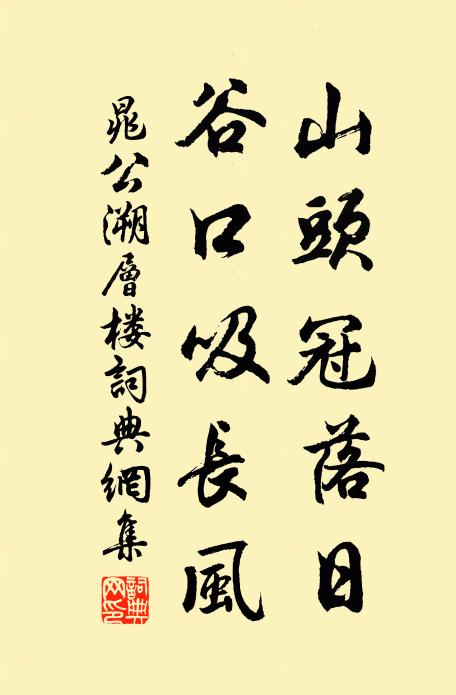 山頭冠落日
谷口吸長風
晁公溯層楼詞典網集
詞典网印